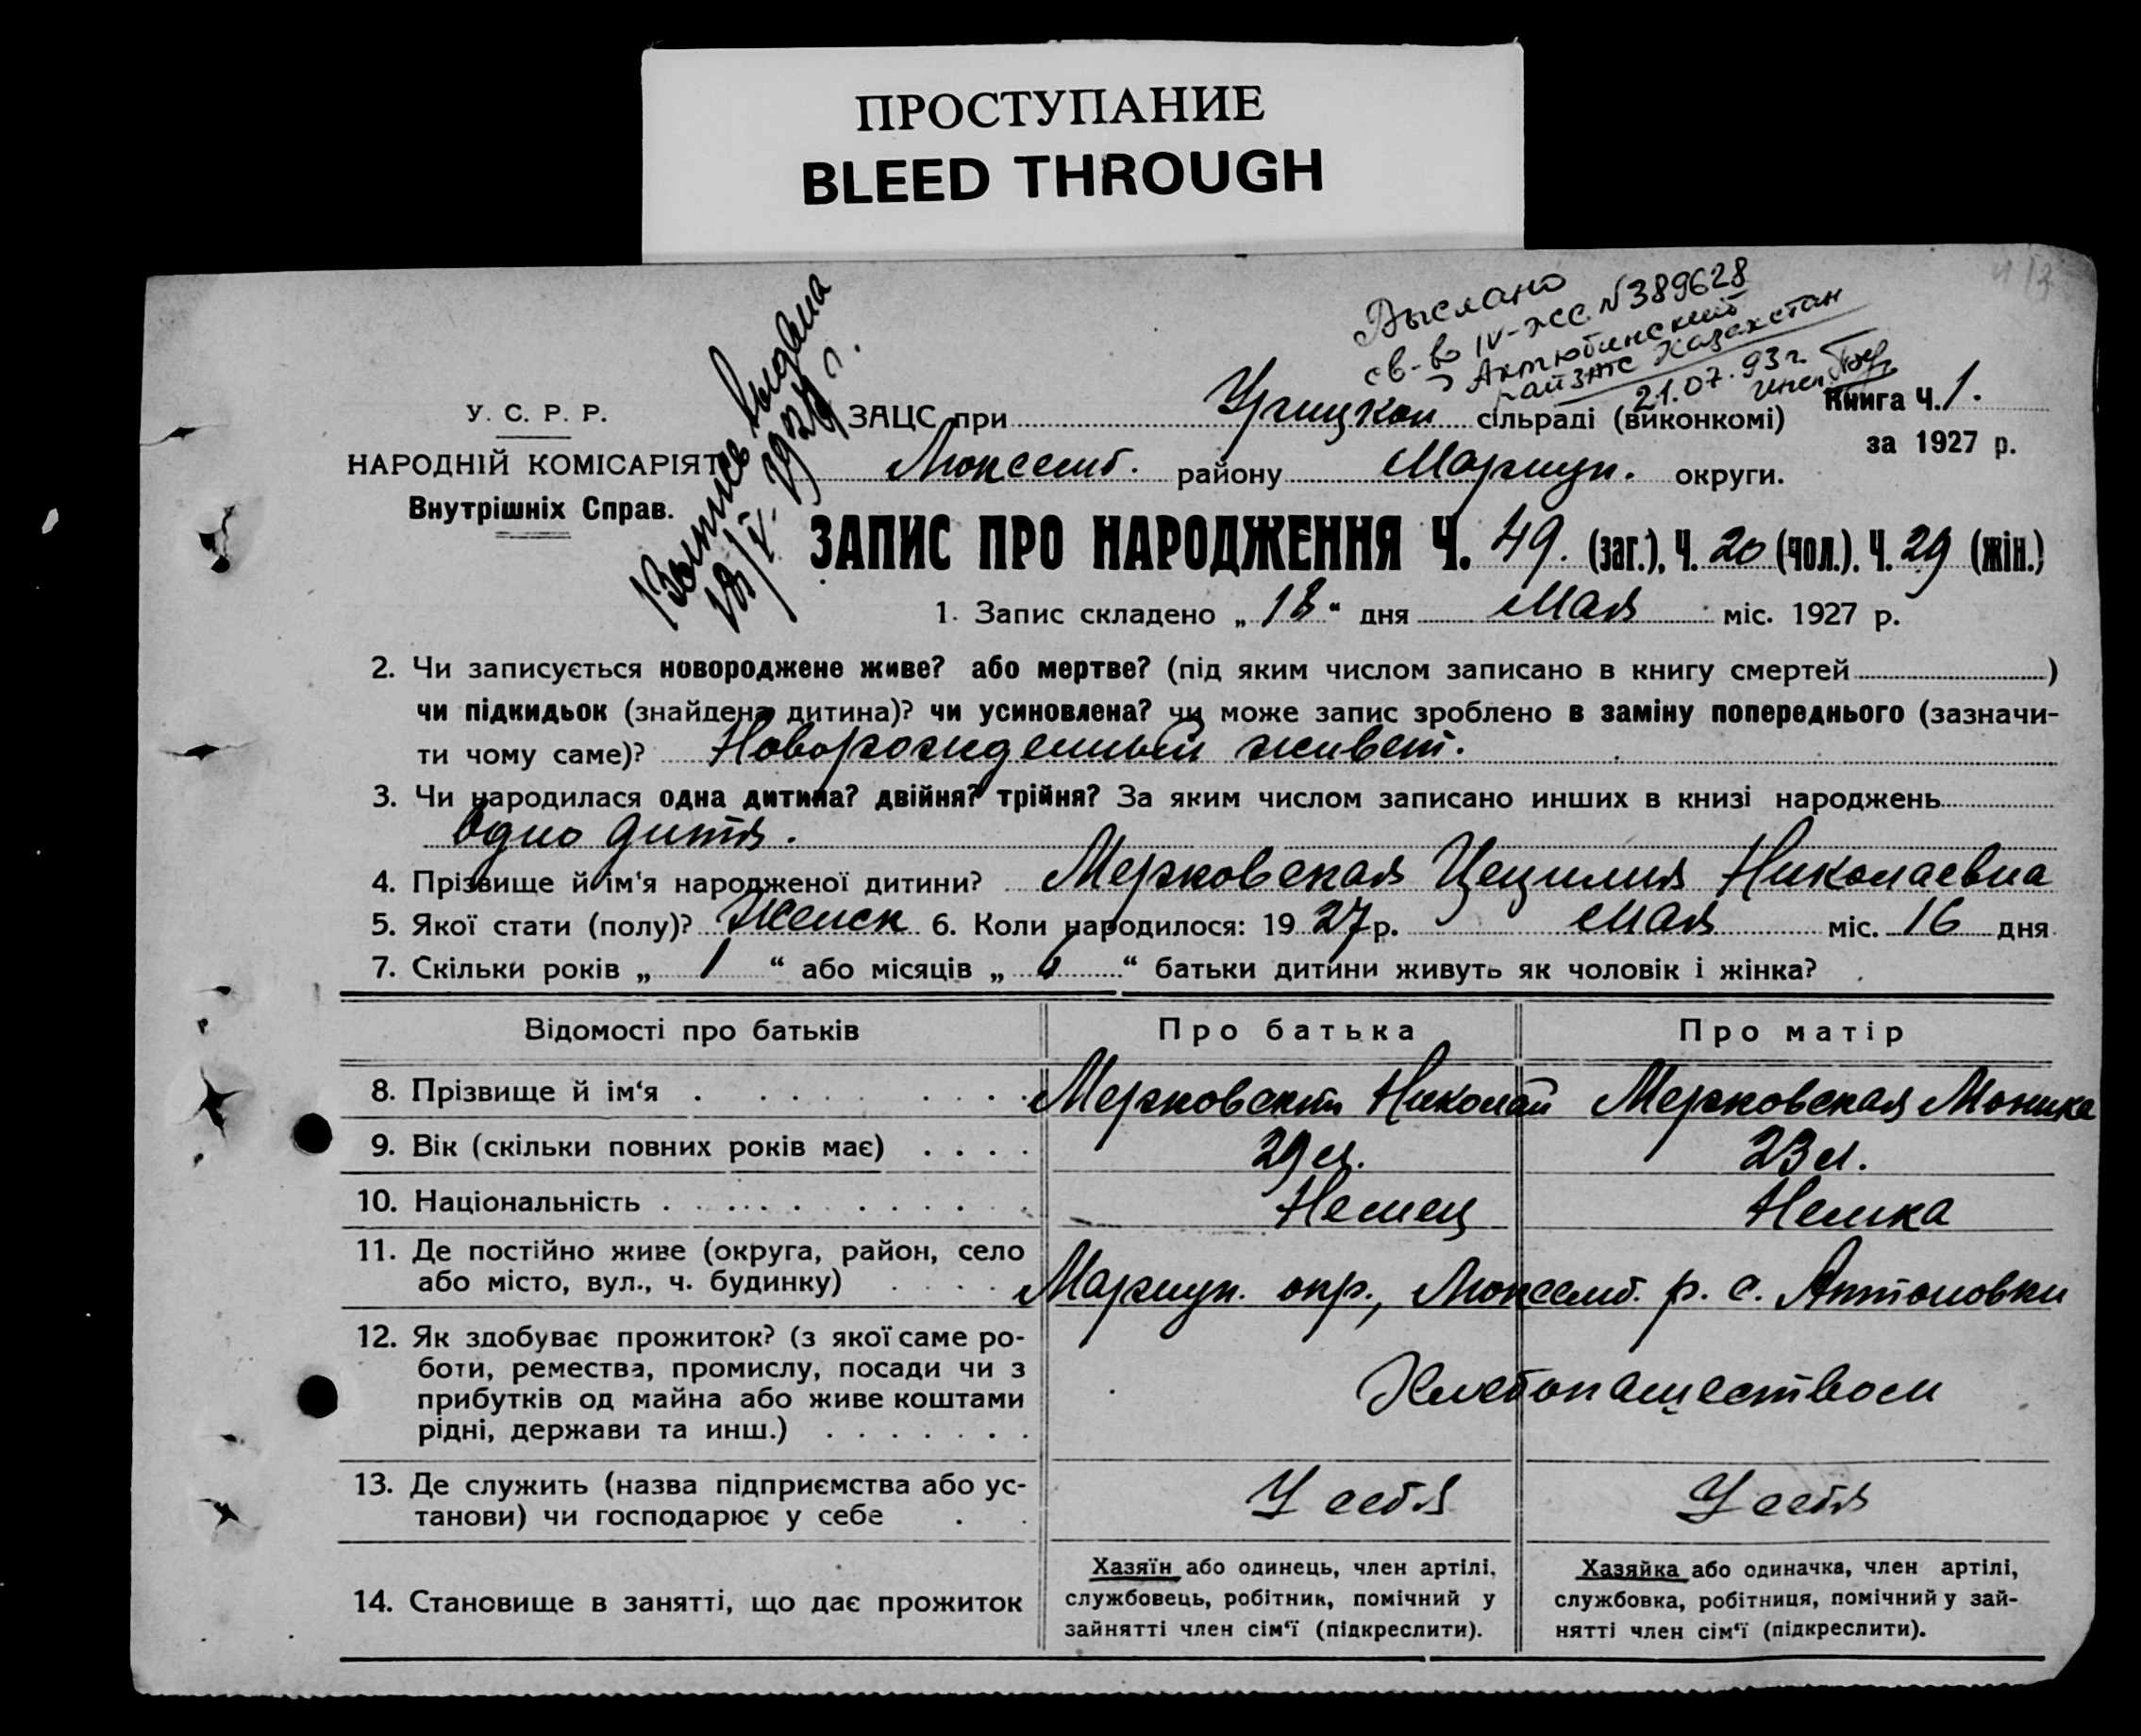 ПРОСТУПАНИЕ
BLEED THROUGH
Выслано
св-во IV-ЖС №389628
Актюбинский
райЗАГС Казахстан
21.07.93г.
Выпись выдана
У. С. Р. Р.
НАРОДНІЙ КОМІСАРІЯТ
Внутрішніх Справ.
ЗАЦС при Урицком сільраді (виконкомі)
Книга Ч. 1.
за 1927 р.
Люксемб. району Мариуп. округи.
ЗАПИС ПРО НАРОДЖЕННЯ Ч. 49. (заг.), Ч. 20 (чол.). Ч. 29 (жін.)
1. Запис складено „18“ дня Мая міс. 1927 р.
2. Чи записується новороджене живе? або мертве? (під яким числом записано в книгу смертей )
чи підкидьок (знайдена дитина)? чи усиновлена? чи може запис зроблено в заміну попереднього (зазначи-
ти чому саме)? Новорожденный живет.
3. Чи народилася одна дитина? двійня? трійня? За яким числом записано инших в книзі народжень
Одно дитя.
4. Прізвище й ім'я народженої дитини? Мерковская Цецилия Николаевна
5. Якої стати (полу)? Женск 6. Коли народилося: 1927 р. Мая міс. 16 дня
7. Скільки років „ 1 “ або місяців „ “ батьки дитини живуть як чоловік і жінка?
Відомості про батьків Про батька Про матір
8. Прізвище й ім'я . . . . . . . Мерковский Николай Мерковская Моника
9. Вік (скільки повних років має) . . . . 29 л. 23 л.
10. Національність . . . . . . . . . Немец Немка
11. Де постійно живе (округа, район, село
або місто, вул., ч. будинку) . . . . Мариуп. окр., Люксемб. р. с. Антоновки
12. Як здобуває прожиток? (з якої саме ро-
боти, ремества, промислу, посади чи з
прибутків од майна або живе коштами
рідні, держави та инш.) . . . . . . .
Хлебопашеством
13. Де служить (назва підприємства або ус-
танови) чи господарює у себе . . У себя У себя
14. Становище в занятті, що дає прожиток
Хазяїн або одинець, член артілі,
службовець, робітник, помічний у
зайнятті член сім'ї (підкреслити).
Хазяйка або одиначка, член артілі,
службовка, робітниця, помічний у зай-
нятті член сім'ї (підкреслити).